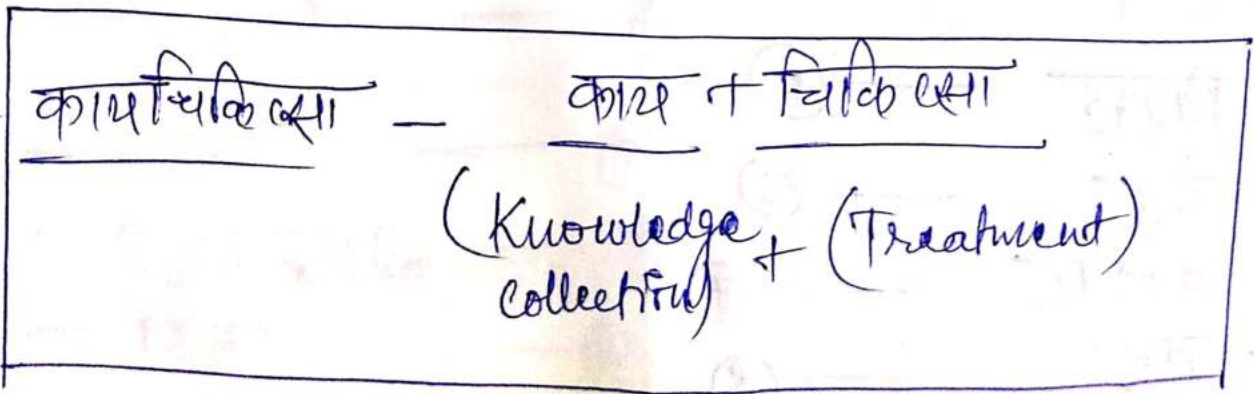 कायचिकित्सा – काय + चिकित्सा
(Knowledge collection) + (Treatment)